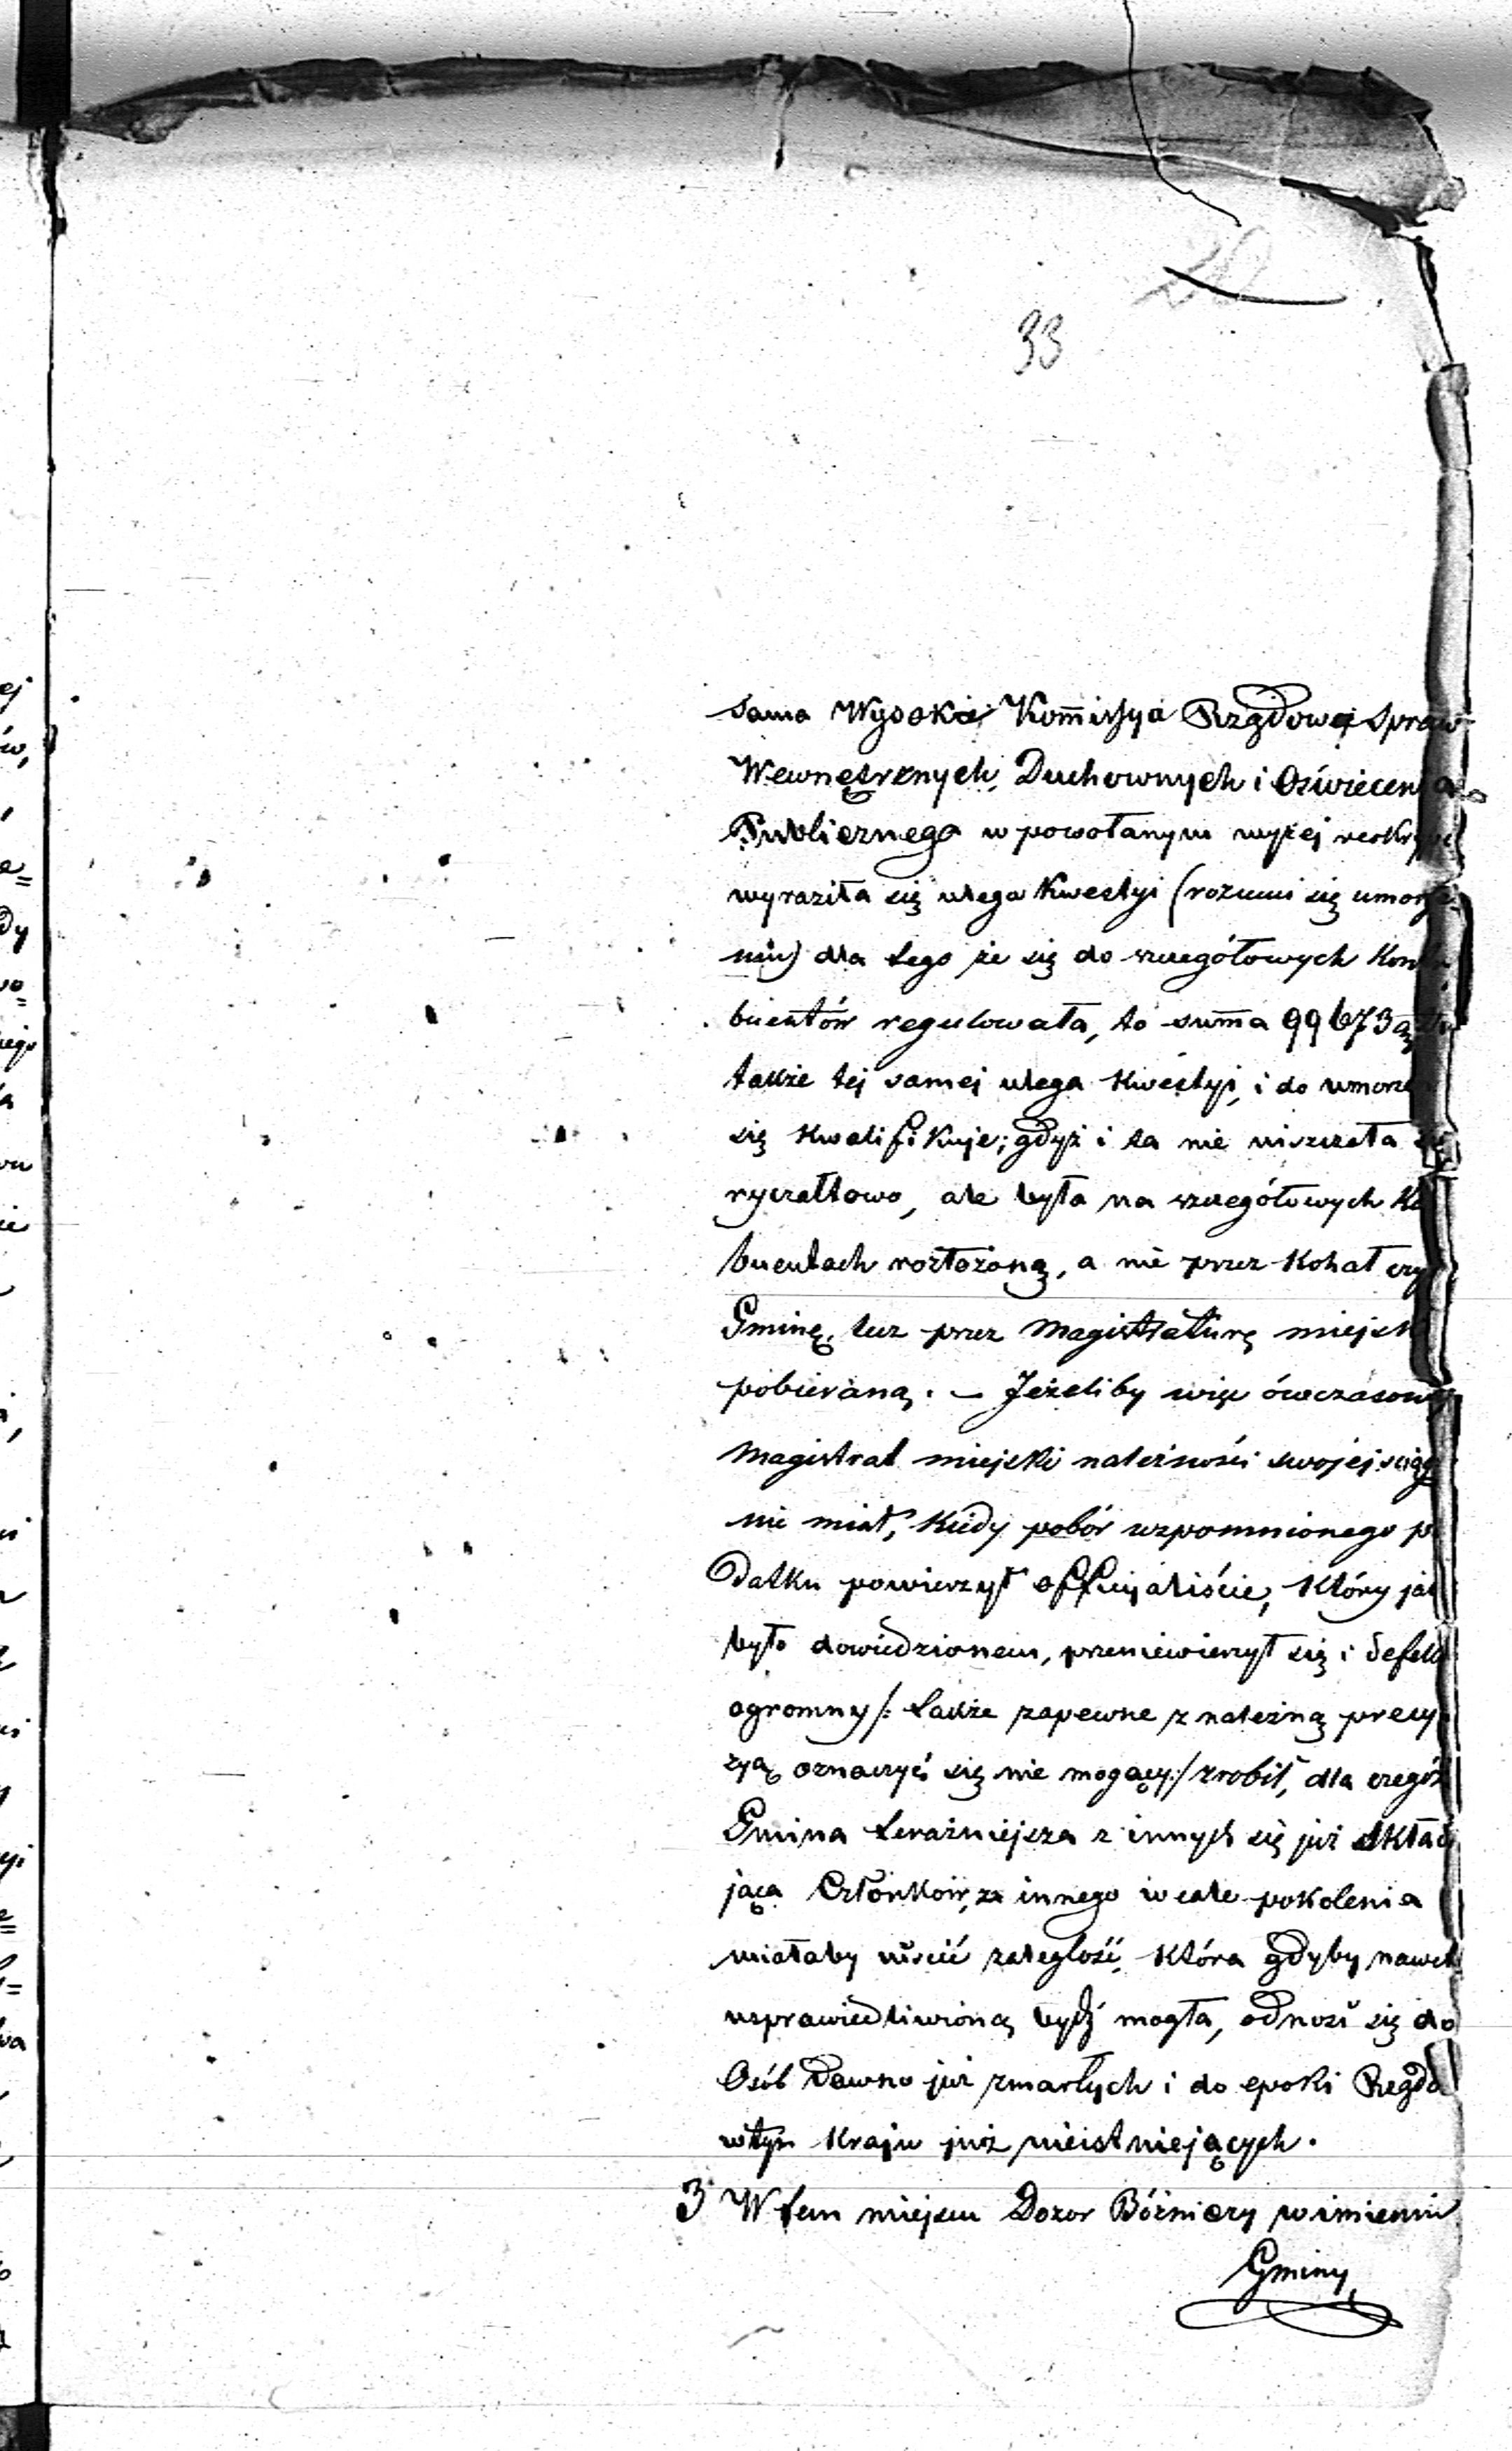 33
sama Wysoka Kommissya Rządowa Spraw
Wewnętrznych, Duchownych i Oświecenia
Publicznego w powołanym wyżej reskry
wyraziła się ulega kwestyi (rozumi się umorze
niu) dla tego że się do szczegółowych Kontry
buentów regulowała, to summa 99673
także tej samej ulega kwestyi, i do umorze
się kwalifikuje; gdyż i ta nie uiszczała się
ryczałtowo, ale była na szczegółowych Ko
buentach rozłożoną, a nie przez Kohał czy
Gminę, lecz przez Magistraturę miejsk
pobieraną. — Jeżeliby więc ówczasowy
Magistrat miejski należności swojej ściąg
nie miał, kiedy pobór wzpomnionego po
datku powierzył officyaliście, który jak
było dowiedzionem, przeniewierzył się i defekt
ogromny /: także zapewne z należną precy
zyą oznaczyć się nie mogący :/ zrobił, dla czegóż
Gmina teraźniejsza z innych się już składa
jąca Członków, za innego wcale pokolenia
miałaby uiścić zaległość, która gdyby nawet
usprawiedliwioną bydź mogła, odnosi się do
Osób dawno już zmarłych i do epoki Rządo
w tym Kraju już nieistniejących.
3 W tem miejscu Dozor Bóżniczy w imieniu
Gminy